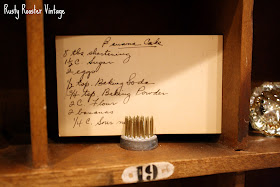 Rusty Rooster Vintage
Banana Cake
8 tbs shortening
1½ C. Sugar
2 eggs
½ tsp. Baking Soda
¼ tsp. Baking Powder
2 C. Flour
2 bananas
¼ C. Sour
19